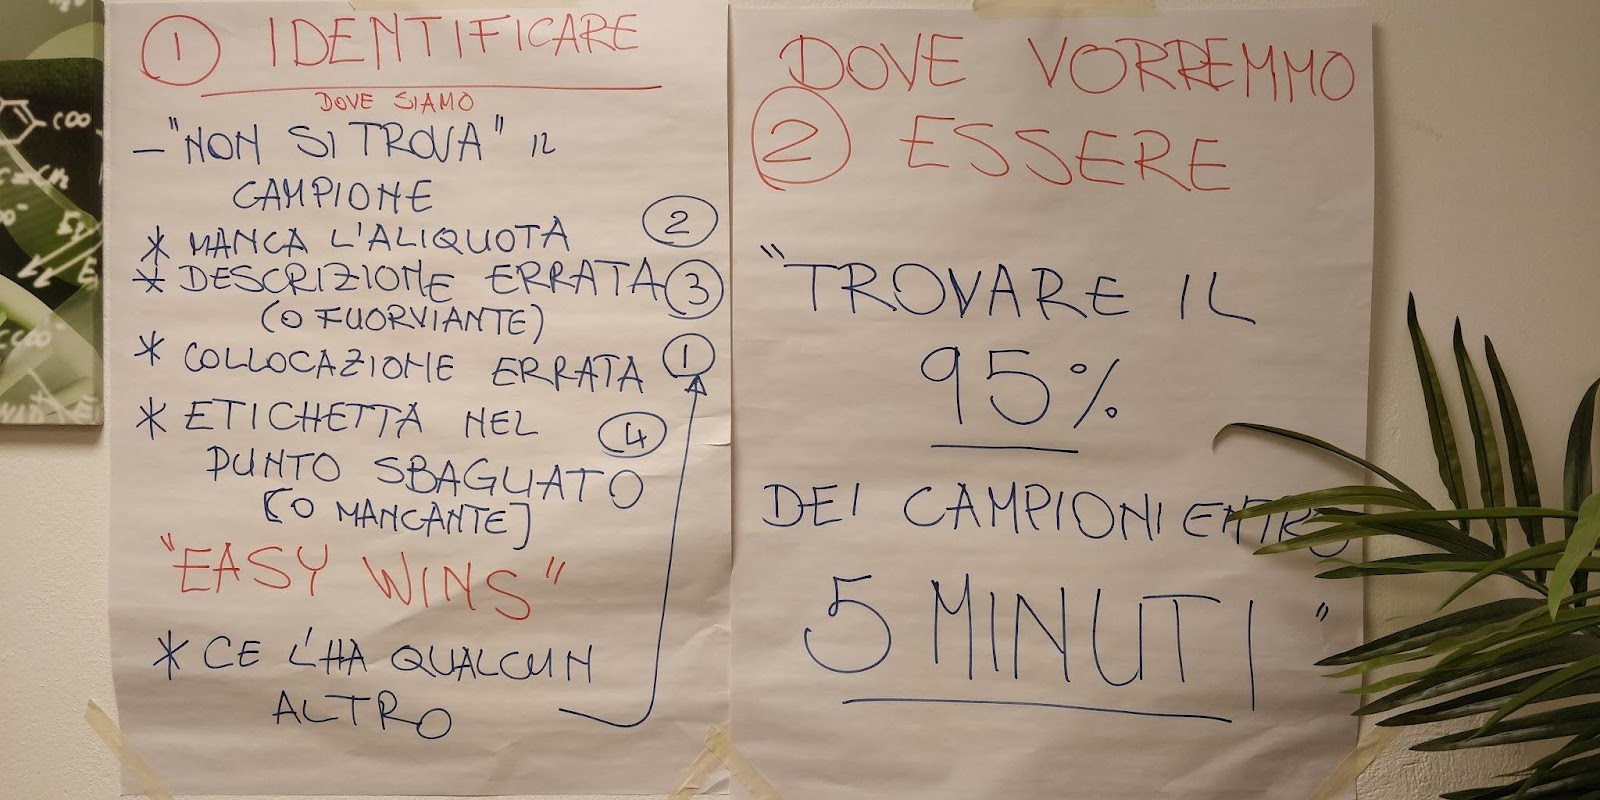 ① IDENTIFICARE
DOVE SIAMO
- "NON SI TROVA" IL
CAMPIONE
* MANCA L'ALIQUOTA ②
* DESCRIZIONE ERRATA ③
(O FUORVIANTE)
* COLLOCAZIONE ERRATA ①
* ETICHETTA NEL ④
PUNTO SBAGLIATO
[O MANCANTE]
"EASY WINS"
* CE L'HA QUALCUN
ALTRO
DOVE VORREMMO
② ESSERE
"TROVARE IL
95%
DEI CAMPIONI ENTRO
5 MINUTI"
COO